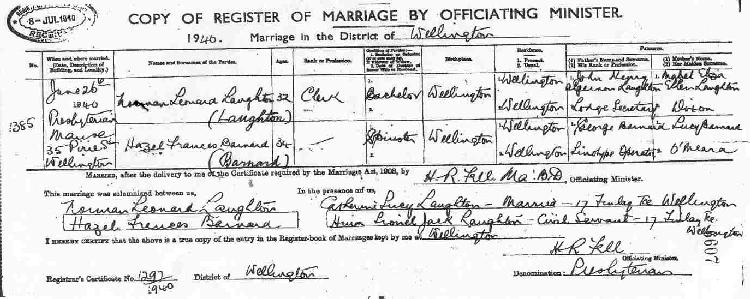 8-JUL 1940
COPY OF REGISTER OF MARRIAGE BY OFFICIATING MINISTER.
1940. Marriage in the District of Wellington
No. When and where married. (Date, Description of Building, and Locality.) Names and Surnames of the Parties. Ages. Rank or Profession. Birthplace. Residence. 1. Present. 2. Usual. Parents. (1) Father's Name and Surname. (2) His Rank or Profession. (1) Mother's Name. (2) Her Maiden Surname.
June 26th 1940 Norman Leonard Laughton 32 Clerk Bachelor Wellington Wellington John Henry Algernon Laughton Mabel Ellen Laughton
(Laughton) Wellington Lodge Secretary Dixon
1385 Presbyterian Manse 35 Pirie St Wellington
Hazel Frances Barnard 34 Spinster Wellington Wellington George Barnard Lucy Barnard
(Barnard) Wellington Linotype Operator O'Meara
MARRIED, after the delivery to me of the Certificate required by the Marriage Act, 1908, by H. R. Fell M.A. B.D., Officiating Minister.
This marriage was solemnized between us, In the presence of us,
Norman Leonard Laughton Catherine Lucy Laughton - Married - 17 Finlay Tce Wellington
Hazel Frances Barnard Lionel Jack Laughton - Civil Servant - 17 Finlay Tce Wellington
I HEREBY CERTIFY that the above is a true copy of the entry in the Register-book of Marriages kept by me at Wellington
H R Fell
Officiating Minister.
Registrar's Certificate No. 1292/1940 District of Wellington Denomination: Presbyterian